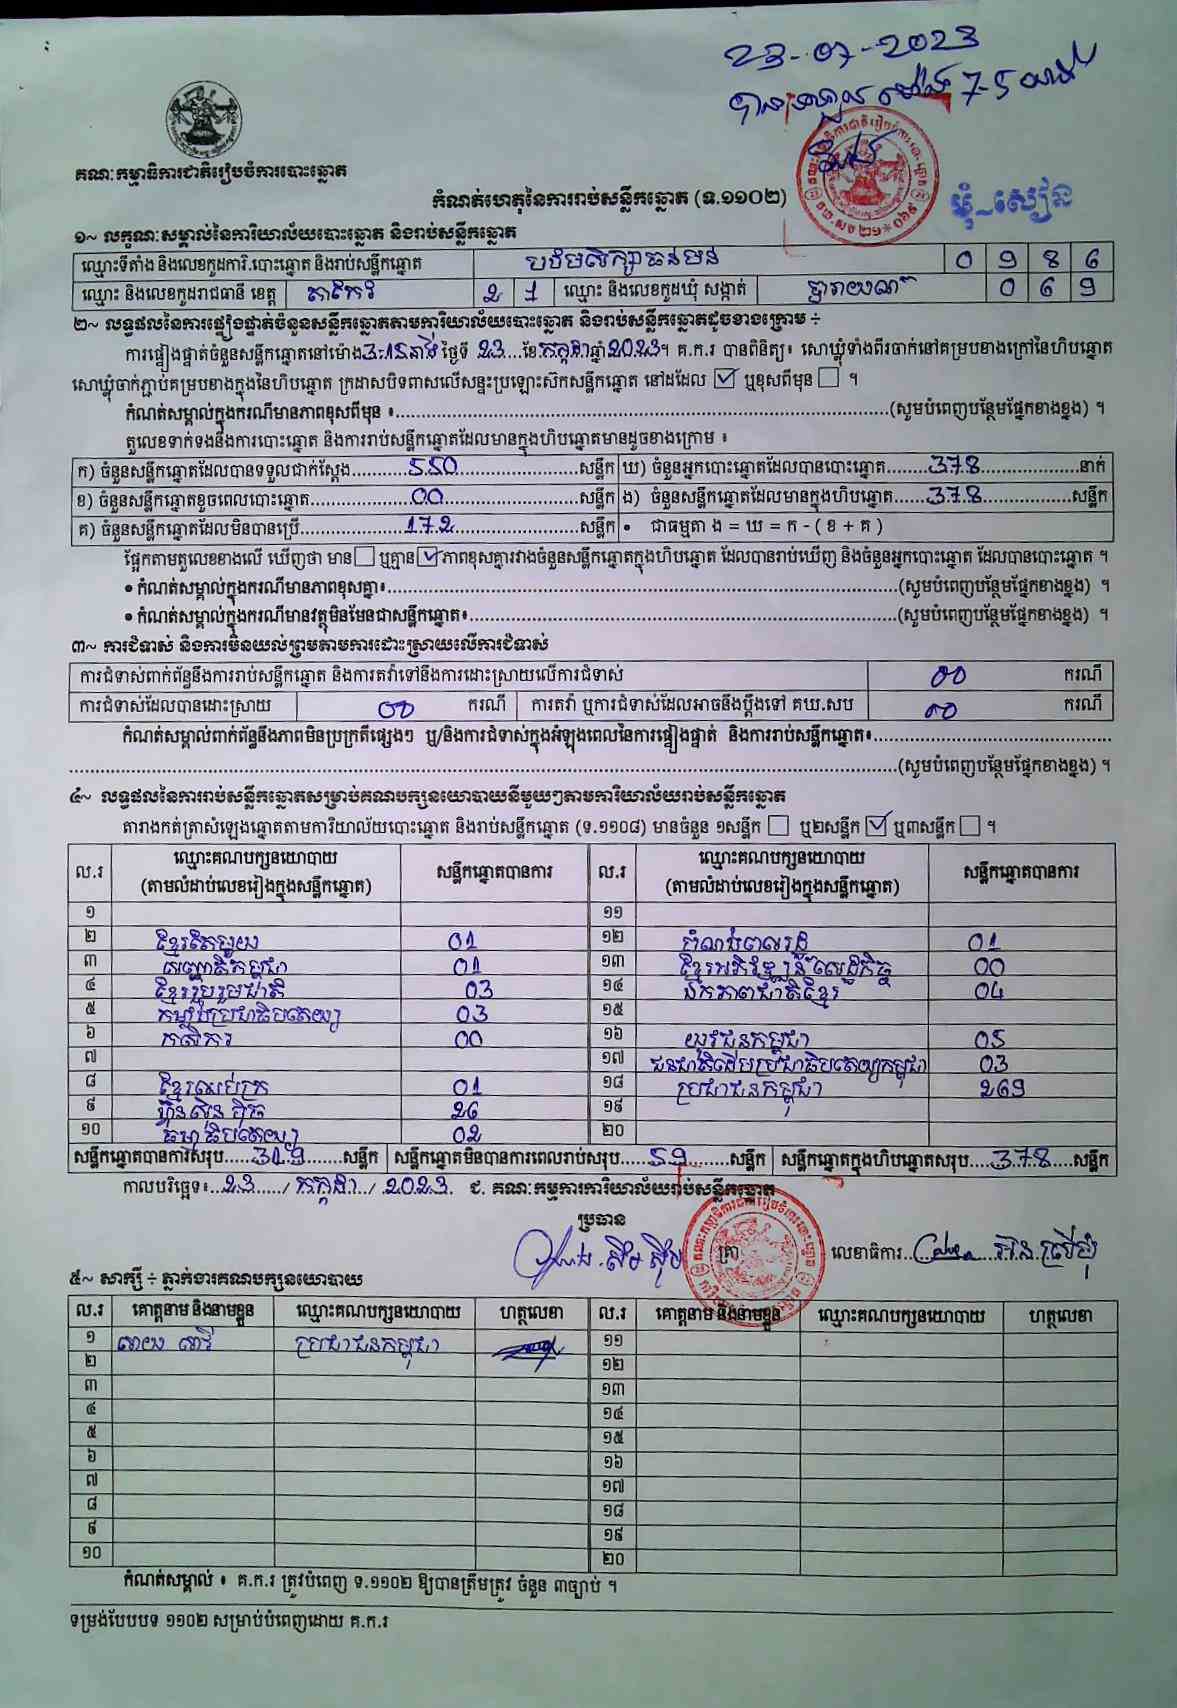 23-07-2023
7-5
គណៈកម្មាធិការជាតិរៀបចំការបោះឆ្នោត
កំណត់ហេតុនៃការរាប់សន្លឹកឆ្នោត (ទ.១១០២)
១~ លក្ខណៈសម្គាល់នៃការិយាល័យបោះឆ្នោត និងរាប់សន្លឹកឆ្នោត
ឈ្មោះទីតាំង និងលេខកូដការិ.បោះឆ្នោត និងរាប់សន្លឹកឆ្នោត បឋមសិក្សាធន់មន់ 0 9 8 6
ឈ្មោះ និងលេខកូដរាជធានី ខេត្ត តាកែវ 2 1 ឈ្មោះ និងលេខកូដឃុំ សង្កាត់ 0 6 9
២~ លទ្ធផលនៃការផ្ទៀងផ្ទាត់ចំនួនសន្លឹកឆ្នោតតាមការិយាល័យបោះឆ្នោត និងរាប់សន្លឹកឆ្នោតដូចខាងក្រោម ÷
ការផ្ទៀងផ្ទាត់ចំនួនសន្លឹកឆ្នោតនៅម៉ោង 3:15នាទី ថ្ងៃទី 23...ខែ កក្កដា ឆ្នាំ 2023។ គ.ក.រ បានពិនិត្យ៖ សោឃ្លុំទាំងពីរចាក់នៅគម្របខាងក្រៅនៃហិបឆ្នោត
សោឃ្លុំចាក់ភ្ជាប់គម្របខាងក្នុងនៃហិបឆ្នោត ក្រដាសបិទពាសលើសន្ទះប្រឡោះស៊កសន្លឹកឆ្នោត នៅដដែល ☑ ឬខុសពីមុន ☐ ។
កំណត់សម្គាល់ក្នុងករណីមានភាពខុសពីមុន ៖...(សូមបំពេញបន្ថែមផ្នែកខាងខ្នង) ។
តួលេខទាក់ទងនឹងការបោះឆ្នោត និងការរាប់សន្លឹកឆ្នោតដែលមានក្នុងហិបឆ្នោតមានដូចខាងក្រោម ៖
ក) ចំនួនសន្លឹកឆ្នោតដែលបានទទួលជាក់ស្តែង...550...សន្លឹក ឃ) ចំនួនអ្នកបោះឆ្នោតដែលបានបោះឆ្នោត...378...នាក់
ខ) ចំនួនសន្លឹកឆ្នោតខូចពេលបោះឆ្នោត...00...សន្លឹក ង) ចំនួនសន្លឹកឆ្នោតដែលមានក្នុងហិបឆ្នោត...378...សន្លឹក
គ) ចំនួនសន្លឹកឆ្នោតដែលមិនបានប្រើ...172...សន្លឹក • ជាធម្មតា ង = ឃ = ក - ( ខ + គ )
ផ្អែកតាមតួលេខខាងលើ ឃើញថា មាន ☐ ឬគ្មាន ☑ ភាពខុសគ្នារវាងចំនួនសន្លឹកឆ្នោតក្នុងហិបឆ្នោត ដែលបានរាប់ឃើញ និងចំនួនអ្នកបោះឆ្នោត ដែលបានបោះឆ្នោត ។
• កំណត់សម្គាល់ក្នុងករណីមានភាពខុសគ្នា៖...(សូមបំពេញបន្ថែមផ្នែកខាងខ្នង) ។
• កំណត់សម្គាល់ក្នុងករណីមានវត្ថុមិនមែនជាសន្លឹកឆ្នោត៖...(សូមបំពេញបន្ថែមផ្នែកខាងខ្នង) ។
៣~ ការជំទាស់ និងការមិនយល់ព្រមតាមការដោះស្រាយលើការជំទាស់
ការជំទាស់ពាក់ព័ន្ធនឹងការរាប់សន្លឹកឆ្នោត និងការតវ៉ាទៅនឹងការដោះស្រាយលើការជំទាស់ 00 ករណី
ការជំទាស់ដែលបានដោះស្រាយ 00 ករណី ការតវ៉ា ឬការជំទាស់ដែលអាចនឹងប្តឹងទៅ គឃ.សប 00 ករណី
កំណត់សម្គាល់ពាក់ព័ន្ធនឹងភាពមិនប្រក្រតីផ្សេងៗ ឬ/និងការជំទាស់ក្នុងអំឡុងពេលនៃការផ្ទៀងផ្ទាត់ និងការរាប់សន្លឹកឆ្នោត៖...
...(សូមបំពេញបន្ថែមផ្នែកខាងខ្នង) ។
៤~ លទ្ធផលនៃការរាប់សន្លឹកឆ្នោតសម្រាប់គណបក្សនយោបាយនីមួយៗតាមការិយាល័យរាប់សន្លឹកឆ្នោត
តារាងកត់ត្រាសំឡេងឆ្នោតតាមការិយាល័យបោះឆ្នោត និងរាប់សន្លឹកឆ្នោត (ទ.១១០៨) មានចំនួន ១សន្លឹក ☐ ឬ២សន្លឹក ☑ ឬ៣សន្លឹក ☐ ។
ល.រ ឈ្មោះគណបក្សនយោបាយ (តាមលំដាប់លេខរៀងក្នុងសន្លឹកឆ្នោត) សន្លឹកឆ្នោតបានការ ល.រ ឈ្មោះគណបក្សនយោបាយ (តាមលំដាប់លេខរៀងក្នុងសន្លឹកឆ្នោត) សន្លឹកឆ្នោតបានការ
១ ១១
២ ខ្មែរតែមួយ 01 ១២ 01
៣ សញ្ជាតិកម្ពុជា 01 ១៣ ខ្មែរអភិវឌ្ឍន៍សេដ្ឋកិច្ច 00
៤ ខ្មែររួបរួមជាតិ 03 ១៤ ឯកភាពជាតិខ្មែរ 04
៥ កម្លាំងប្រជាធិបតេយ្យ 03 ១៥
៦ កសិករ 00 ១៦ យុវជនកម្ពុជា 05
៧ ១៧ ជនជាតិដើមប្រជាធិបតេយ្យកម្ពុជា 03
៨ ខ្មែរឈប់ក្រ 01 ១៨ ប្រជាជនកម្ពុជា 269
៩ ហ្វ៊ុនស៊ិនប៉ិច 26 ១៩
១០ ធម្មាធិបតេយ្យ 02 ២០
សន្លឹកឆ្នោតបានការសរុប...319...សន្លឹក សន្លឹកឆ្នោតមិនបានការពេលរាប់សរុប...59...សន្លឹក សន្លឹកឆ្នោតក្នុងហិបឆ្នោតសរុប...378...សន្លឹក
កាលបរិច្ឆេទ៖...23...../ កក្កដា.../ 2023. ជ. គណៈកម្មការការិយាល័យរាប់សន្លឹកឆ្នោត
ប្រធាន
ត្រា លេខាធិការ...
៥~ សាក្សី ÷ ភ្នាក់ងារគណបក្សនយោបាយ
ល.រ គោត្តនាម និងនាមខ្លួន ឈ្មោះគណបក្សនយោបាយ ហត្ថលេខា ល.រ គោត្តនាម និងនាមខ្លួន ឈ្មោះគណបក្សនយោបាយ ហត្ថលេខា
១ ប្រជាជនកម្ពុជា ១១
២ ១២
៣ ១៣
៤ ១៤
៥ ១៥
៦ ១៦
៧ ១៧
៨ ១៨
៩ ១៩
១០ ២០
កំណត់សម្គាល់ ៖ គ.ក.រ ត្រូវបំពេញ ទ.១១០២ ឱ្យបានត្រឹមត្រូវ ចំនួន ៣ច្បាប់ ។
ទម្រង់បែបបទ ១១០២ សម្រាប់បំពេញដោយ គ.ក.រ